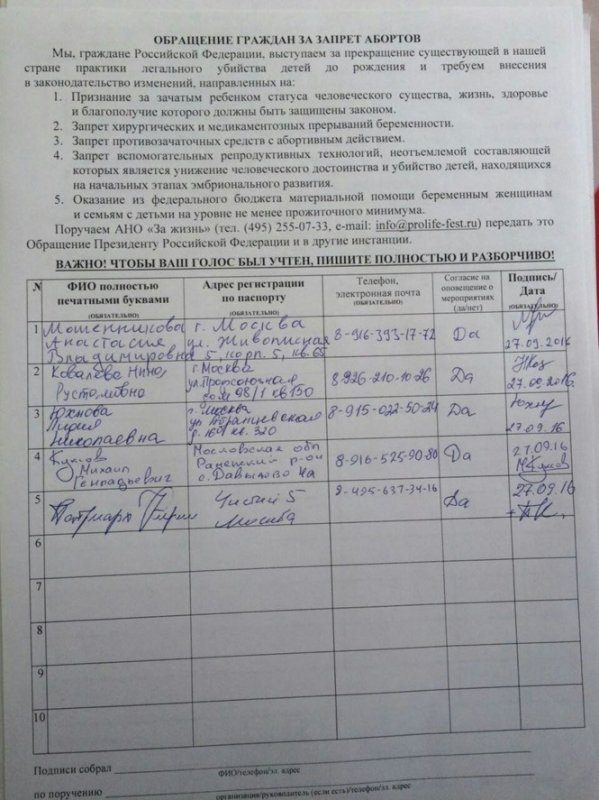 ОБРАЩЕНИЕ ГРАЖДАН ЗА ЗАПРЕТ АБОРТОВ
Мы, граждане Российской Федерации, выступаем за прекращение существующей в нашей
стране практики легального убийства детей до рождения и требуем внесения
в законодательство изменений, направленных на:
1. Признание за зачатым ребенком статуса человеческого существа, жизнь, здоровье
и благополучие которого должны быть защищены законом.
2. Запрет хирургических и медикаментозных прерываний беременности.
3. Запрет противозачаточных средств с абортивным действием.
4. Запрет вспомогательных репродуктивных технологий, неотъемлемой составляющей
которых является унижение человеческого достоинства и убийство детей, находящихся
на начальных этапах эмбрионального развития.
5. Оказание из федерального бюджета материальной помощи беременным женщинам
и семьям с детьми на уровне не менее прожиточного минимума.
Поручаем АНО «За жизнь» (тел. (495) 255-07-33, e-mail: info@prolife-fest.ru) передать это
Обращение Президенту Российской Федерации и в другие инстанции.
ВАЖНО! ЧТОБЫ ВАШ ГОЛОС БЫЛ УЧТЕН, ПИШИТЕ ПОЛНОСТЬЮ И РАЗБОРЧИВО!
N ФИО полностью печатными буквами (ОБЯЗАТЕЛЬНО)
Адрес регистрации по паспорту (ОБЯЗАТЕЛЬНО)
Телефон, электронная почта (ОБЯЗАТЕЛЬНО)
Согласие на оповещение о мероприятиях (да/нет)
Подпись/ Дата (ОБЯЗАТЕЛЬНО)
1 Мошенникова г. Москва
Анастасия ул. Живописная 8-916-393-17-72 Да
Владимировна 5, корп. 5, кв. 27.09.2016
2 Ковалева Нино г. Москва
Рустамовна ул. Профсоюзная 8-926-210-10-26 Да
дом 98/1 кв 150 27.09.2016
3 Юхнова г. Москва
8-915-022-50-24 Да
Николаевна кв. 320 27.09.16
4 Московская обл 27.09.16
Михаил р-он 8-916-525-90 80 Да
Геннадьевич с. Давыдово 4а
5 Патриарх Кирилл Чистый 5 8-495-637-34-16 Да 27.09.16
Москва
6
7
8
9
10
Подписи собрал
ФИО/телефон/эл. адрес
по поручению
организация/руководитель (если есть)/телефон/эл. адрес